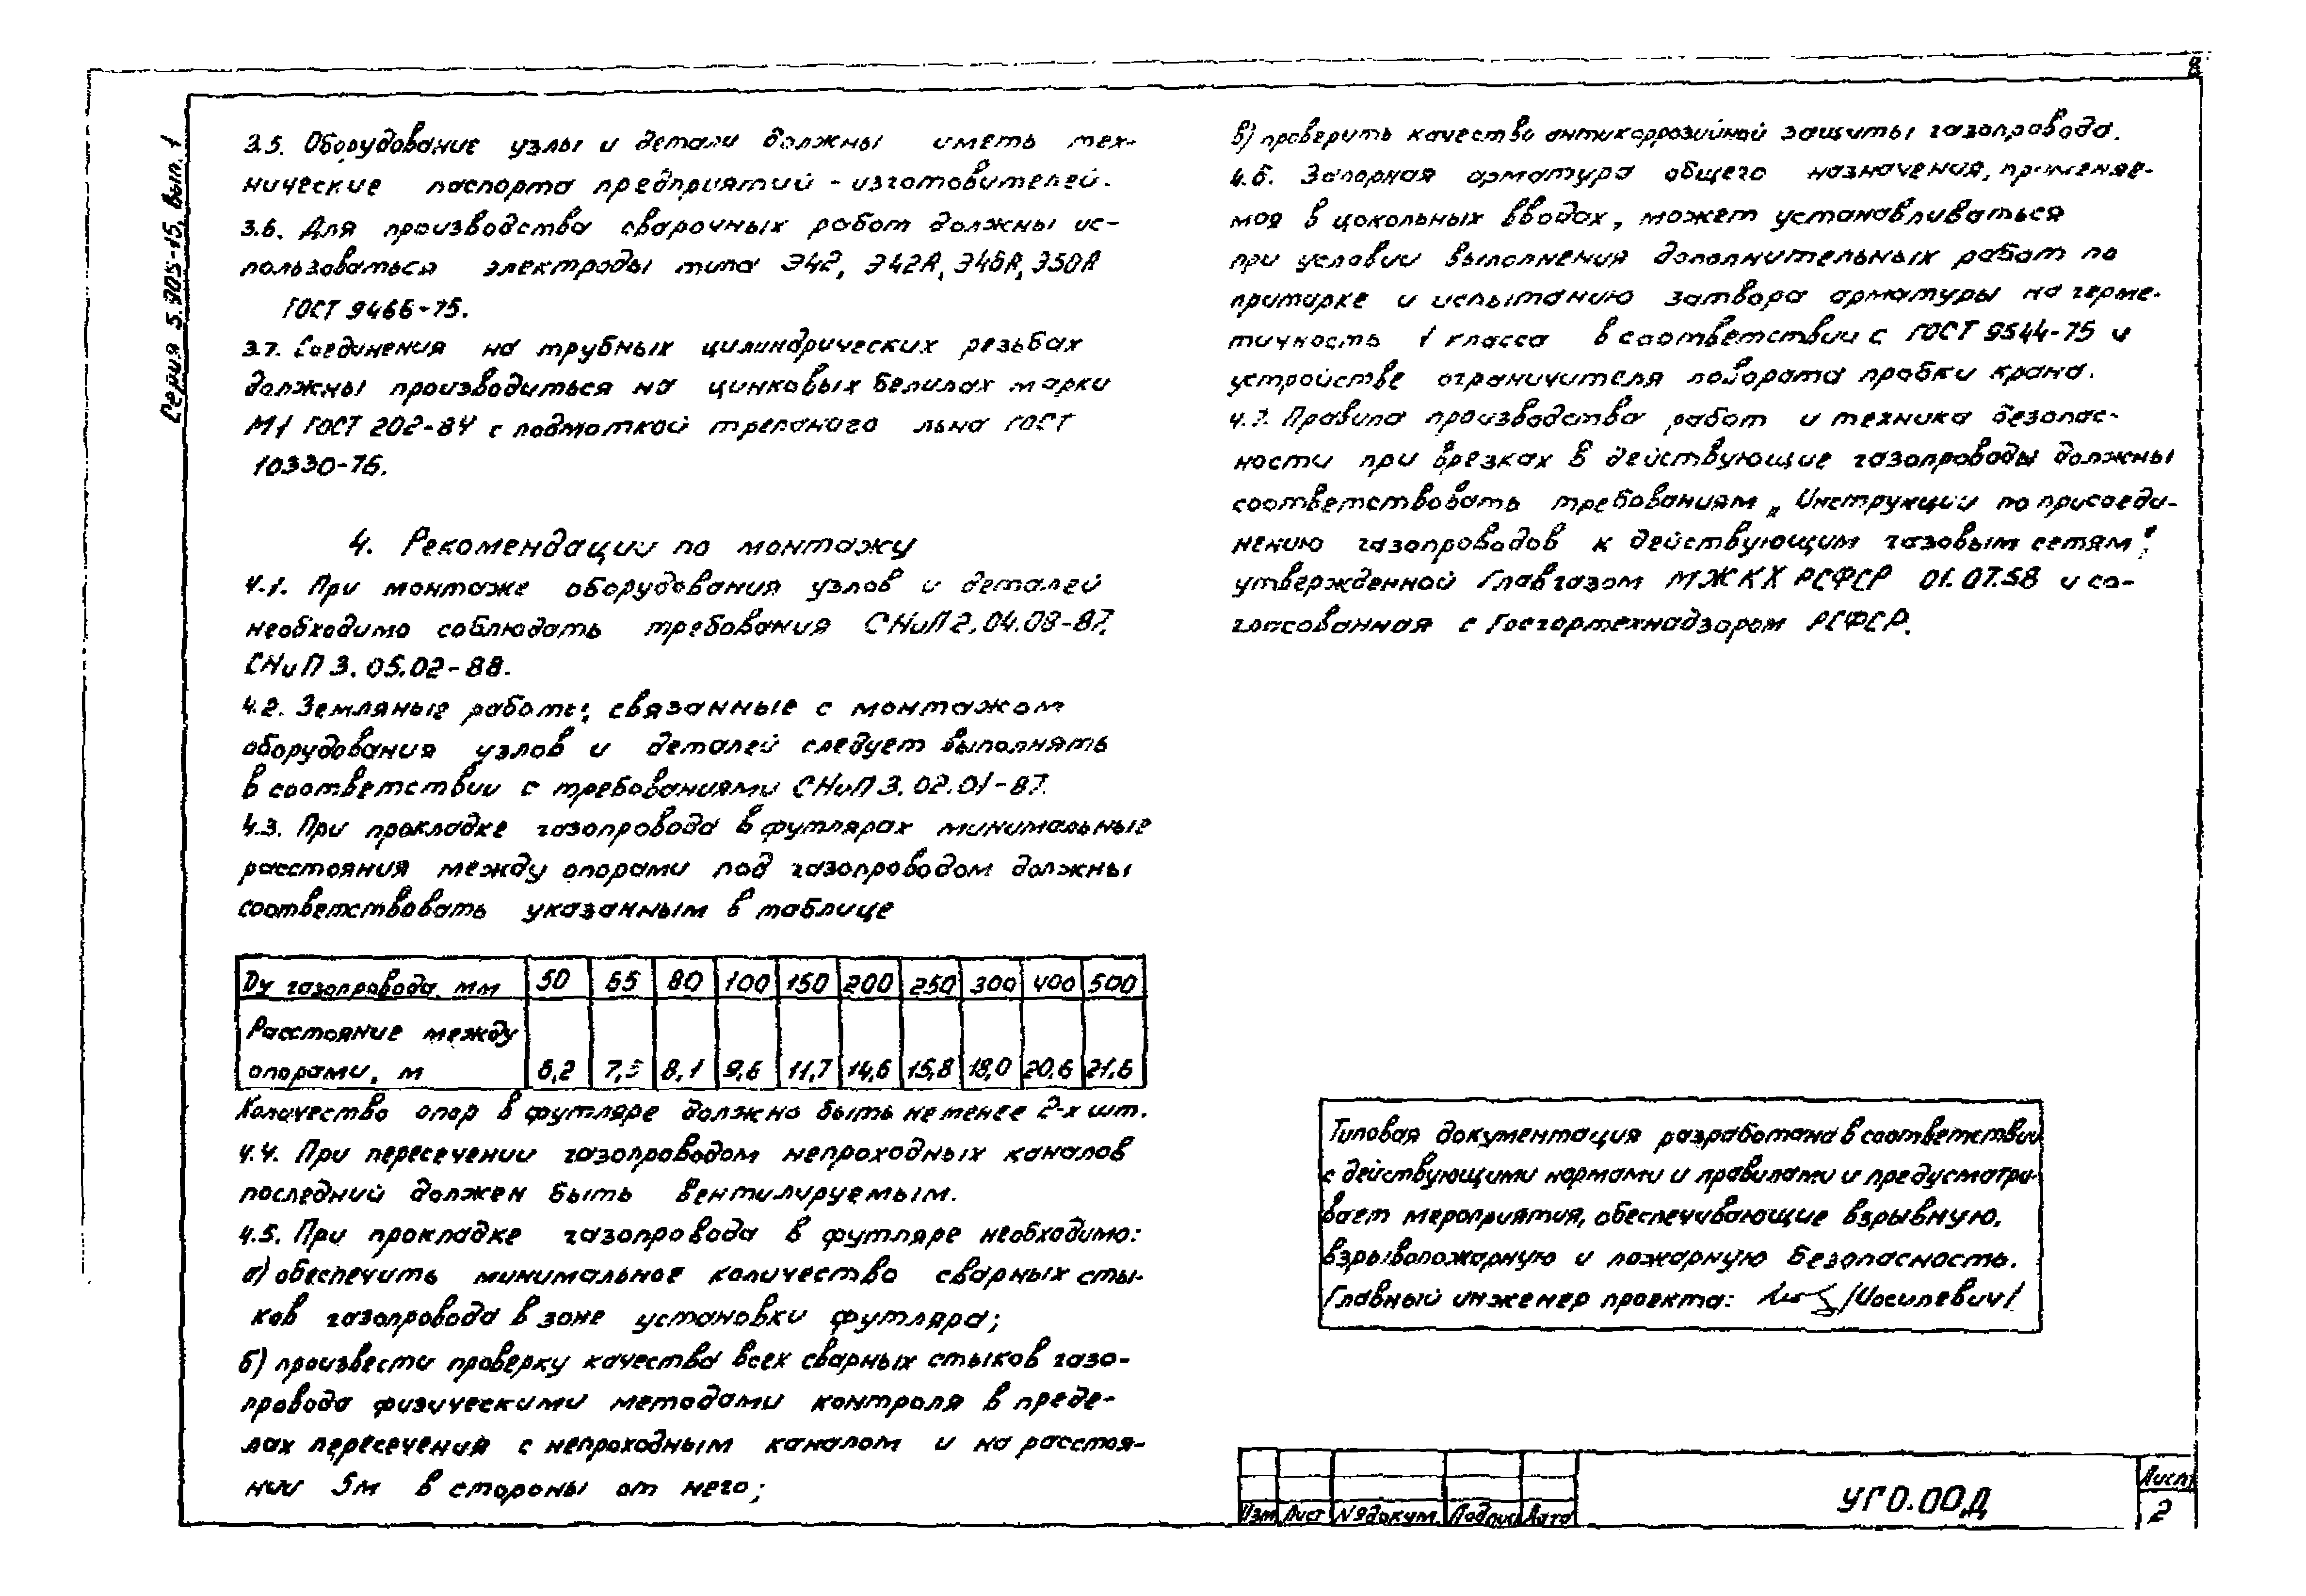 8
Серия 5.905-15, вып. 1
3.5. Оборудование узлы и детали должны иметь тех-
нические паспорта предприятий - изготовителей.
3.6. Для производства сварочных работ должны ис-
пользоваться электроды типа Э42, Э42А, Э46А, Э50А
ГОСТ 9466-75.
3.7. Соединения на трубных цилиндрических резьбах
должны производиться на цинковых белилах марки
М1 ГОСТ 202-84 с подмоткой трепаного льна ГОСТ
10330-76.
4. Рекомендации по монтажу
4.1. При монтаже оборудования узлов и деталей
необходимо соблюдать требования СНиП 2.04.08-87,
СНиП 3.05.02-88.
4.2. Земляные работы, связанные с монтажом
оборудования узлов и деталей следует выполнять
в соответствии с требованиями СНиП 3.02.01-87.
4.3. При прокладке газопровода в футлярах минимальные
расстояния между опорами под газопроводом должны
соответствовать указанным в таблице
Dу газопровода, мм 50 65 80 100 150 200 250 300 400 500
Расстояние между
опорами, м 6,2 8,1 9,6 11,7 14,6 15,8 18,0 20,6 21,6
Количество опор в футляре должно быть не менее 2-х шт.
4.4. При пересечении газопроводом непроходных каналов
последний должен быть вентилируемым.
4.5. При прокладке газопровода в футляре необходимо:
а) обеспечить минимальное количество сварных сты-
ков газопровода в зоне установки футляра;
б) произвести проверку качества всех сварных стыков газо-
провода физическими методами контроля в преде-
лах пересечения с непроходным каналом и на расстоя-
нии 5м в стороны от него;
в) проверить качество антикоррозийной защиты газопровода.
4.6. Запорная арматура общего назначения, применяе-
мая в цокольных вводах, может устанавливаться
при условии выполнения дополнительных работ по
притирке и испытанию затвора арматуры на герме-
тичность 1 класса в соответствии с ГОСТ 9544-75 и
устройстве ограничителя поворота пробки крана.
4.7. Правила производства работ и техника безопас-
ности при врезках в действующие газопроводы должны
соответствовать требованиям „Инструкции по присоеди-
нению газопроводов к действующим газовым сетям",
утвержденной Главгазом МЖКХ РСФСР 01.07.58 и со-
гласованная с Госгортехнадзором РСФСР.
Типовая документация разработана в соответствии
с действующими нормами и правилами и предусматри-
вает мероприятия, обеспечивающие взрывную,
взрывопожарную и пожарную безопасность.
Главный инженер проекта: /Иосилевич/
Изм Лист №докум. Подпись Дата
УГ0.00Д
Лист
2